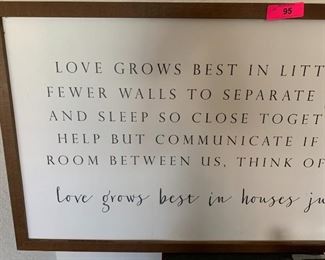 95
LOVE GROWS BEST IN LITT
FEWER WALLS TO SEPARATE
AND SLEEP SO CLOSE TOGET
HELP BUT COMMUNICATE IF
ROOM BETWEEN US, THINK OF
love grows best in houses ju